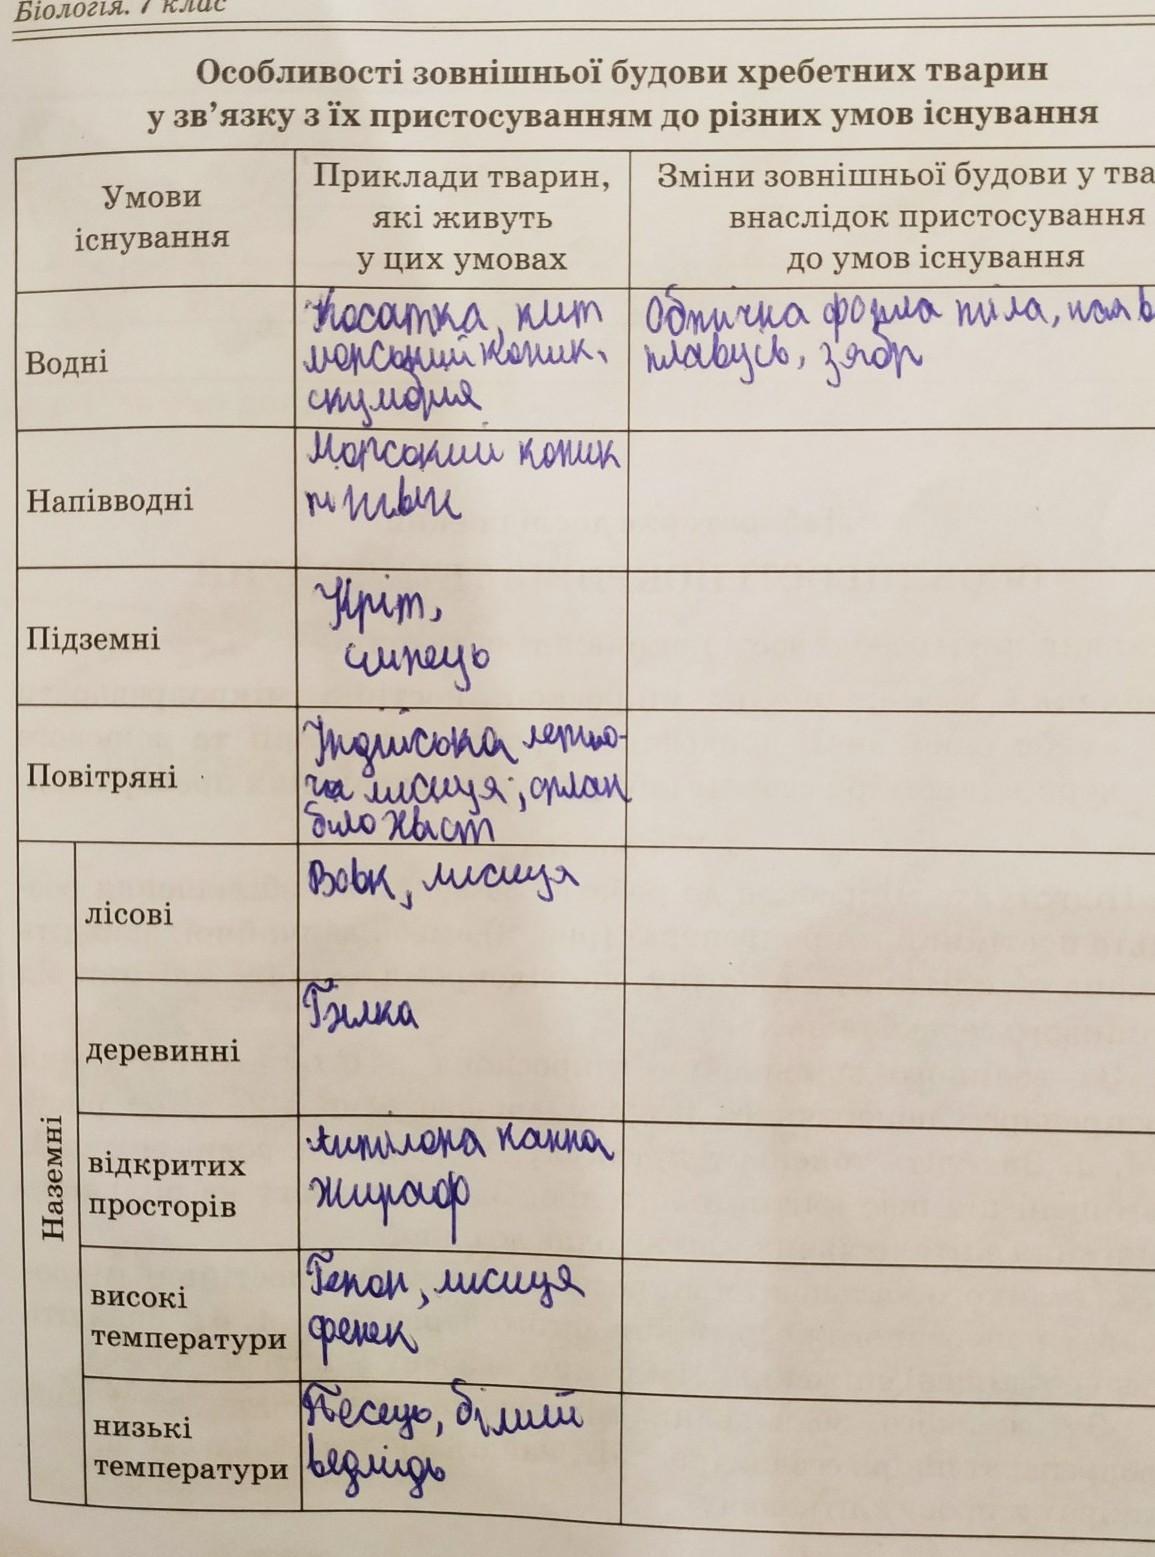 Біологія. 7 клас
Особливості зовнішньої будови хребетних тварин
у зв’язку з їх пристосуванням до різних умов існування
Умови
існування
Приклади тварин,
які живуть
у цих умовах
Зміни зовнішньої будови у тва
внаслідок пристосування
до умов існування
Водні
Косатка, кит
морський коник,
скумбрія
Обтічна форма тіла, наяв
плавців, зябр
Напівводні
Морський коник
пінгвін
Підземні
Кріт,
сліпець
Повітряні
Індійська летю-
ча лисиця, орлан
білохвіст
Наземні
лісові
Вовк, лисиця
деревинні
Білка
відкритих
просторів
Антилопа канна
Жираф
високі
температури
Гекон, лисиця
фенек
низькі
температури
Песець, білий
ведмідь